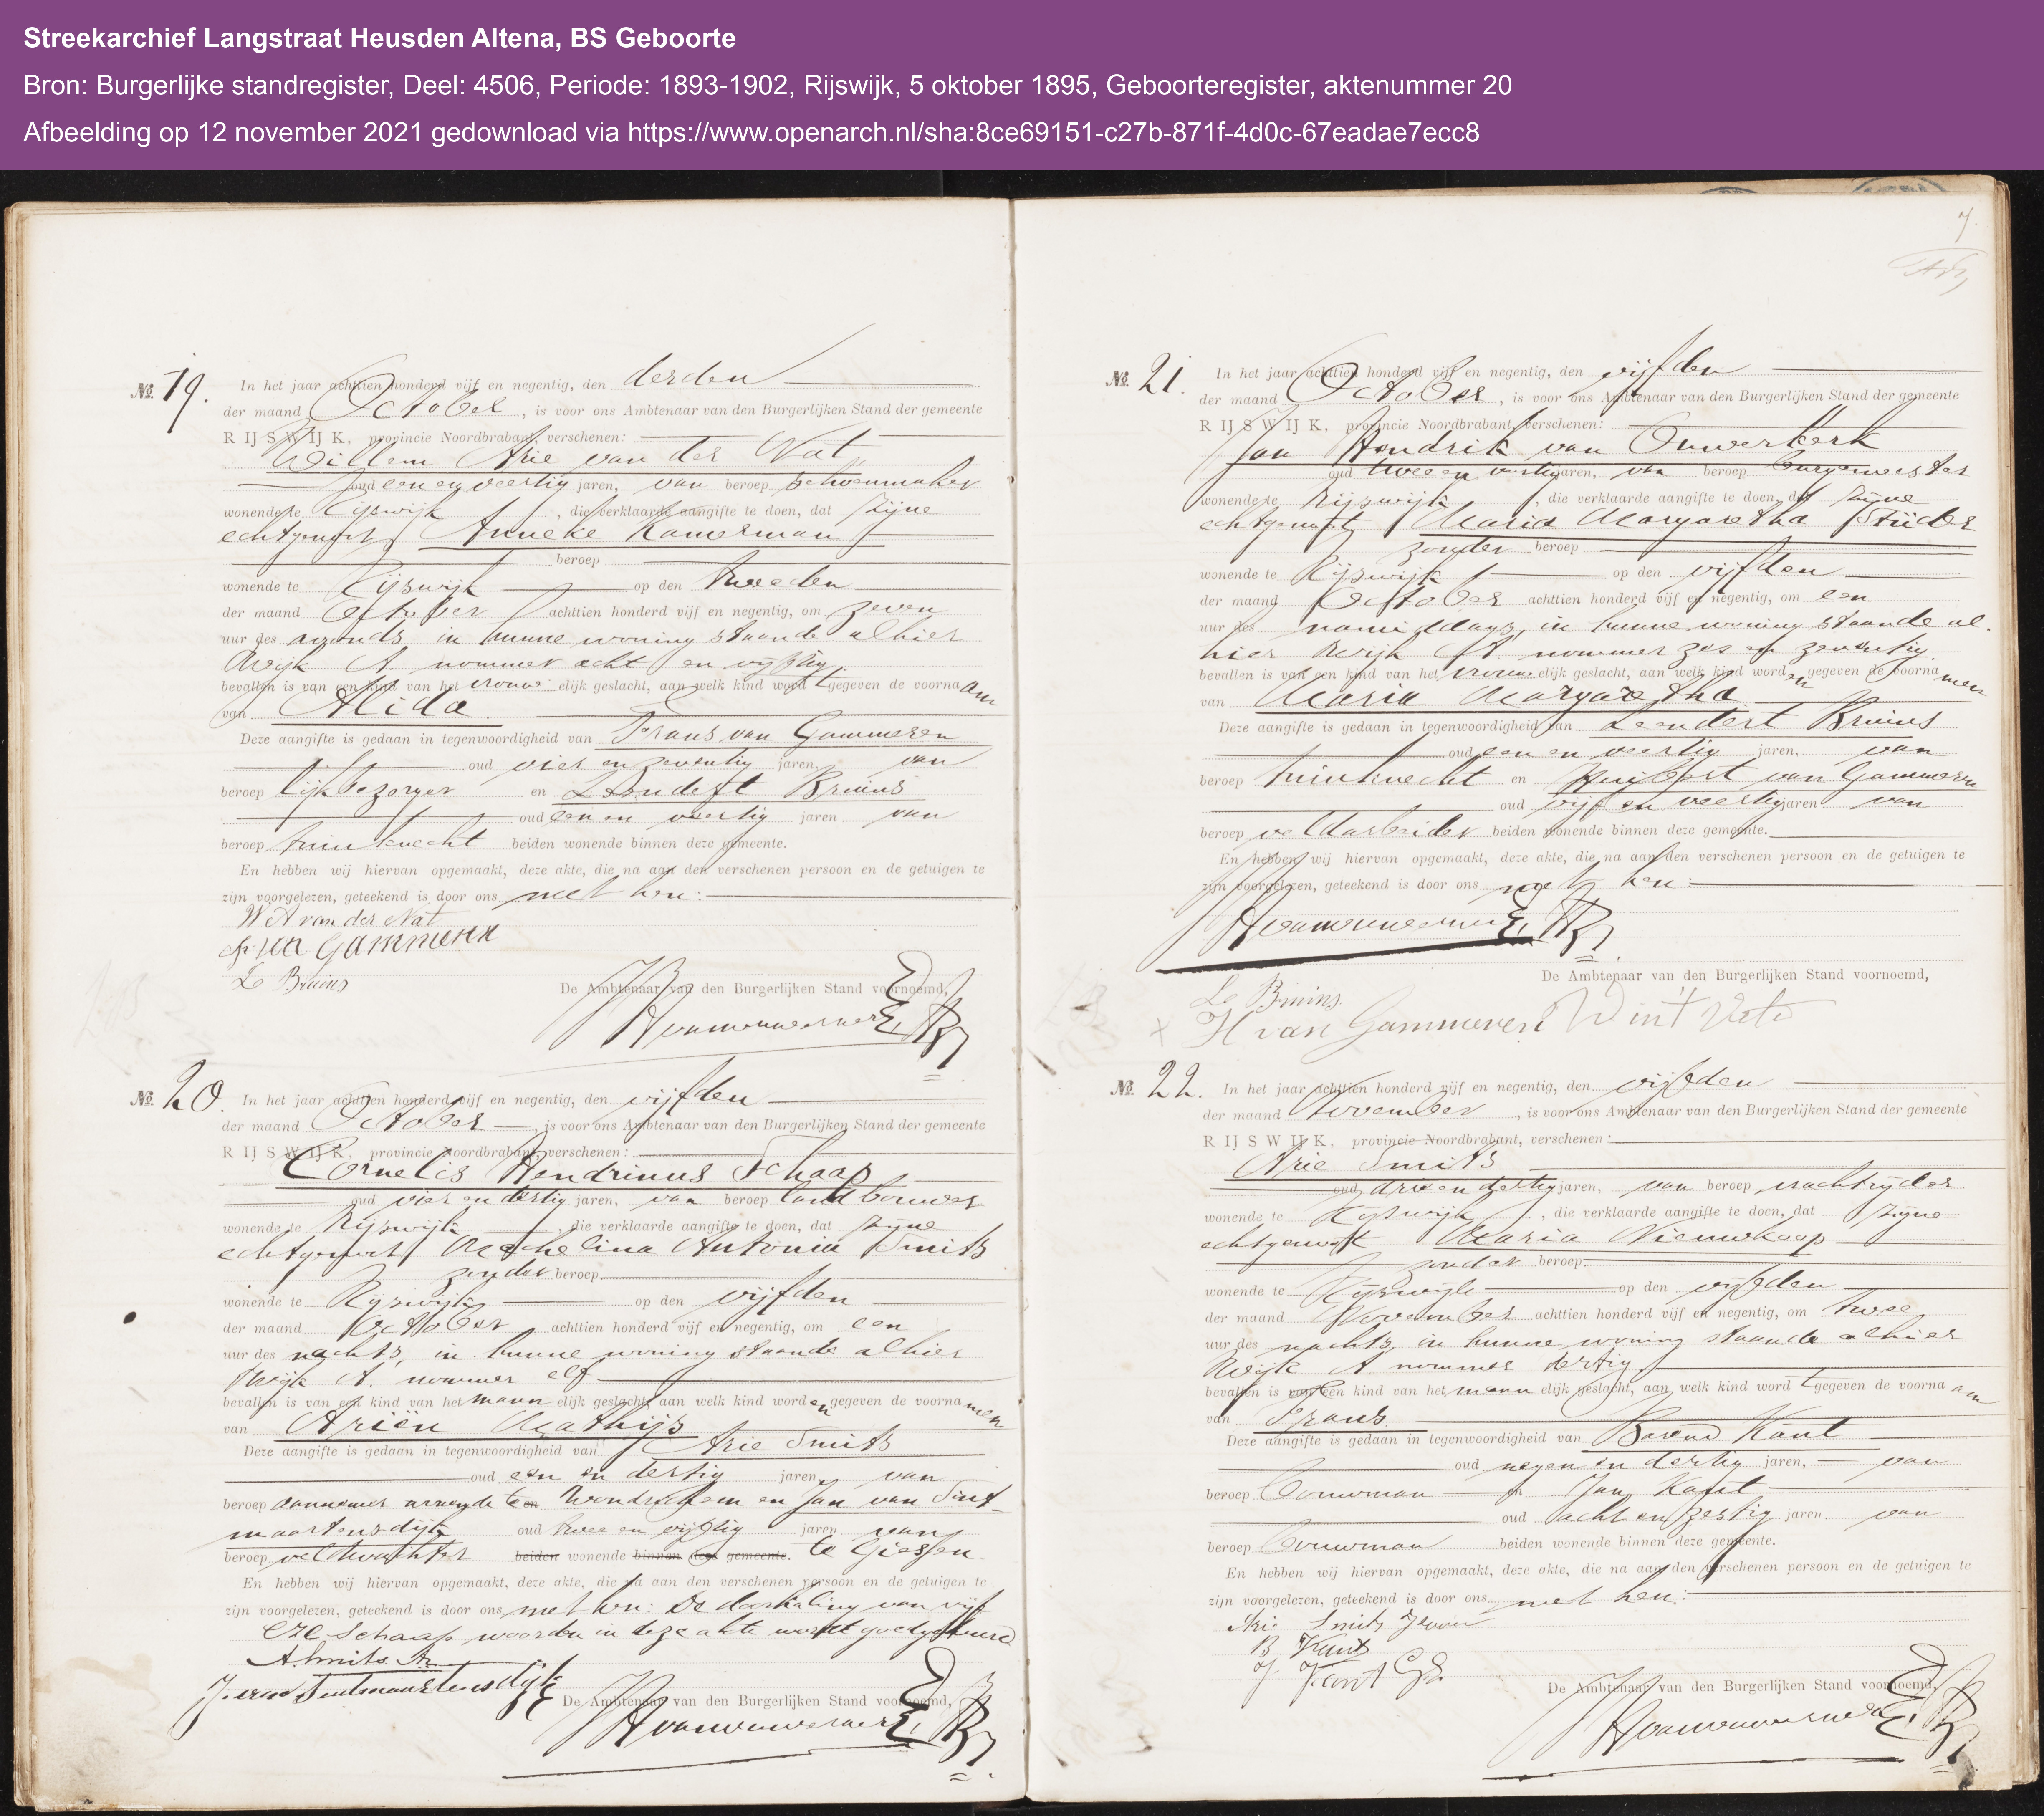 Streekarchief Langstraat Heusden Altena, BS Geboorte
Bron: Burgerlijke standregister, Deel: 4506, Periode: 1893-1902, Rijswijk, 5 oktober 1895, Geboorteregister, aktenummer 20
Afbeelding op 12 november 2021 gedownload via https://www.openarch.nl/sha:8ce69151-c27b-871f-4d0c-67eadae7ecc8
No. 19. In het jaar achttien honderd vijf en negentig, den derden
der maand October, is voor ons Ambtenaar van den Burgerlijken Stand der gemeente
RIJSWIJK, provincie Noordbrabant, verschenen:
Willem Arie van der Nat,
oud een en veertig jaren, van beroep schoenmaker
wonende te Rijswijk, die verklaarde aangifte te doen, dat zijne
echtgenoot Anneke Kamerman
beroep
wonende te Rijswijk op den tweeden
der maand October achttien honderd vijf en negentig, om zeven
uur des avonds, in hunne woning staande alhier
Wijk A. nommer acht en vijftig.
bevallen is van een kind van het vrouwelijk geslacht, aan welk kind wordt gegeven de voornaam
van Alida.
Deze aangifte is gedaan in tegenwoordigheid van Frans van Gammeren
oud vier en zeventig jaren, van
beroep lijkbezorger en Leendert Bruins
oud een en veertig jaren van
beroep tuinknecht beiden wonende binnen deze gemeente.
En hebben wij hiervan opgemaakt, deze akte, die na aan den verschenen persoon en de getuigen te
zijn voorgelezen, geteekend is door ons met hen:
W A van der Nat
F van Gammeren
L Bruins
De Ambtenaar van den Burgerlijken Stand voornoemd,
No. 20. In het jaar achttien honderd vijf en negentig, den vijfden
der maand October, is voor ons Ambtenaar van den Burgerlijken Stand der gemeente
RIJSWIJK, provincie Noordbrabant, verschenen:
Cornelis Hendrinus Schaap
oud vier en dertig jaren, van beroep landbouwer
wonende te Rijswijk, die verklaarde aangifte te doen, dat zijne
echtgenoot Machelina Antonia Smits
zonder beroep
wonende te Rijswijk op den vijfden
der maand October achttien honderd vijf en negentig, om een
uur des nachts, in hunne woning staande alhier
Wijk A. nommer elf
bevallen is van een kind van het mannelijk geslacht, aan welk kind worden gegeven de voornamen
van Ariën Mathijs
Deze aangifte is gedaan in tegenwoordigheid van Arie Smits
oud een en dertig jaren, van
beroep aannemer wonende te Woudrichem en Jan van Sint-
maartensdijk oud twee en vijftig jaren van
beroep veldwachter beiden wonende binnen deze gemeente. te Giessen.
En hebben wij hiervan opgemaakt, deze akte, die na aan den verschenen persoon en de getuigen te
zijn voorgelezen, geteekend is door ons met hen: De doorhaling van vijf
CH Schaap woorden in deze akte wordt goedgekeurd
A. Smits Az
J. van Sintmaartensdijk
De Ambtenaar van den Burgerlijken Stand voornoemd,
7.
No. 21. In het jaar achttien honderd vijf en negentig, den vijfden
der maand October, is voor ons Ambtenaar van den Burgerlijken Stand der gemeente
RIJSWIJK, provincie Noordbrabant, verschenen:
Jan Hendrik van Ouwerkerk
oud twee en veertig jaren, van beroep burgemeester
wonende te Rijswijk, die verklaarde aangifte te doen, dat zijne
echtgenoot Maria Margaretha Stüder
zonder beroep
wonende te Rijswijk op den vijfden
der maand October achttien honderd vijf en negentig, om een
uur des namiddags, in hunne woning staande al-
hier Wijk A. nommer zes en zeventig.
bevallen is van een kind van het vrouwelijk geslacht, aan welk kind worden gegeven de voornamen
van Maria Margaretha
Deze aangifte is gedaan in tegenwoordigheid van Leendert Bruins
oud een en veertig jaren, van
beroep tuinknecht en Huibert van Gammeren
oud vijf en veertig jaren van
beroep veldarbeider beiden wonende binnen deze gemeente.
En hebben wij hiervan opgemaakt, deze akte, die na aan den verschenen persoon en de getuigen te
zijn voorgelezen, geteekend is door ons met hen:
De Ambtenaar van den Burgerlijken Stand voornoemd,
L Bruins
H van Gammeren
No. 22. In het jaar achttien honderd vijf en negentig, den vijfden
der maand November, is voor ons Ambtenaar van den Burgerlijken Stand der gemeente
RIJSWIJK, provincie Noordbrabant, verschenen:
Arie Smits
oud drie en dertig jaren, van beroep vrachtrijder
wonende te Rijswijk, die verklaarde aangifte te doen, dat zijne
echtgenoot Maria Nieuwkoop
zonder beroep
wonende te Rijswijk op den vijfden
der maand November achttien honderd vijf en negentig, om twee
uur des nachts, in hunne woning staande alhier
Wijk A nommer dertig
bevallen is van een kind van het mannelijk geslacht, aan welk kind wordt gegeven de voornaam
van Frans.
Deze aangifte is gedaan in tegenwoordigheid van Barend Kant
oud negen en dertig jaren, van
beroep bouwman en Jan Kant
oud acht en zestig jaren. van
beroep bouwman beiden wonende binnen deze gemeente.
En hebben wij hiervan opgemaakt, deze akte, die na aan den verschenen persoon en de getuigen te
zijn voorgelezen, geteekend is door ons met hen:
Arie Smits
B Kant
J. Kant
De Ambtenaar van den Burgerlijken Stand voornoemd,